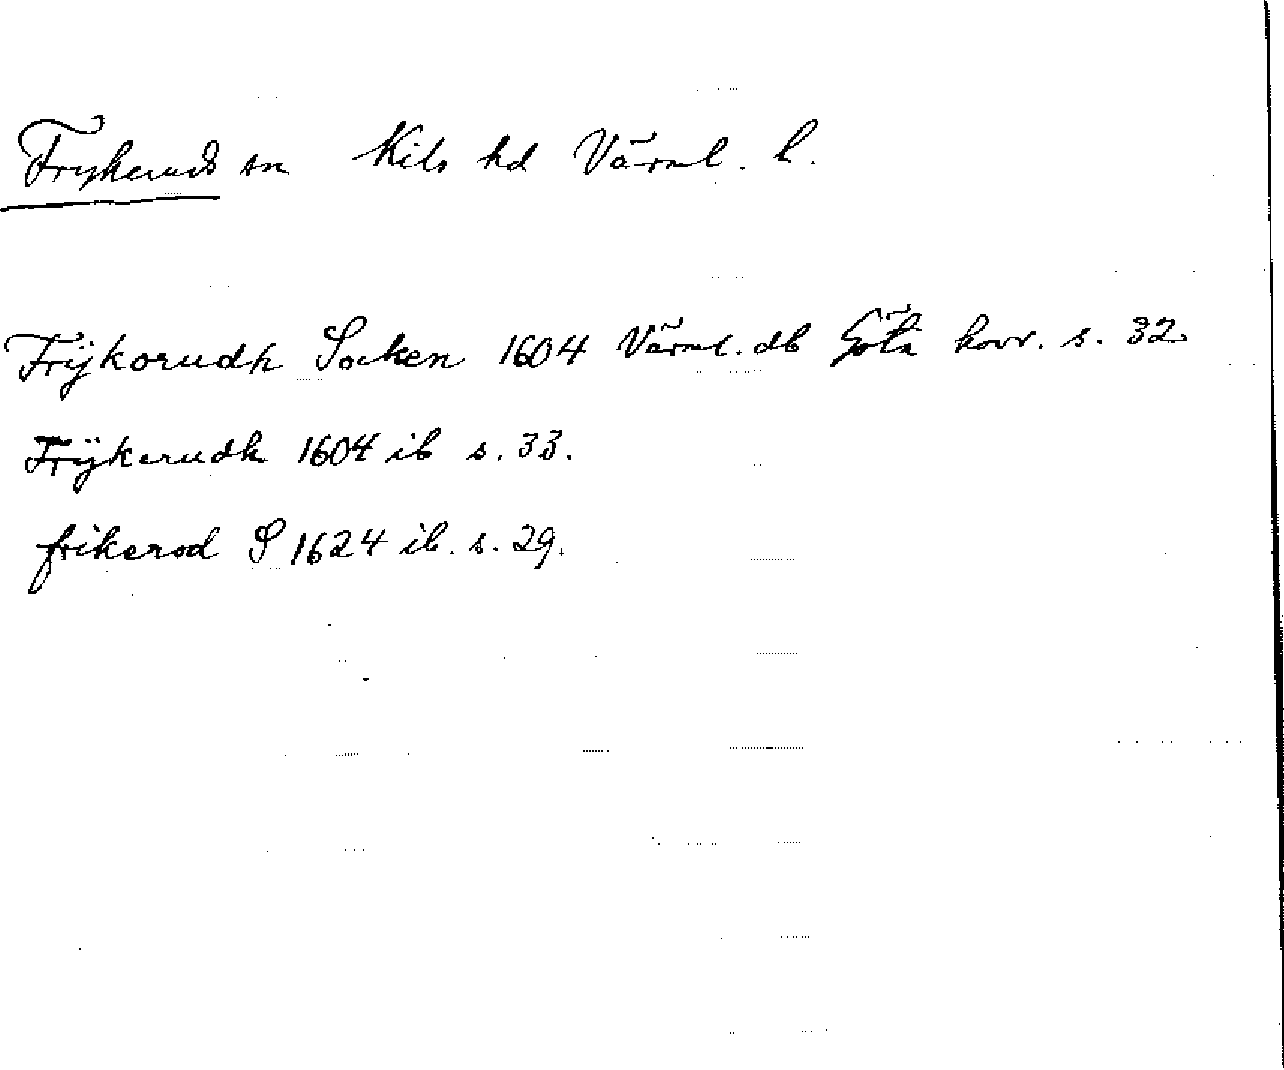 Frykeruds sn Kils hd Värml. l.
Frÿkorudh Socken 1604 Värml. db Göta hovr. s. 32.
Frÿkerudh 1604 ib s. 33.
frikerod S 1624 ib. s. 29.